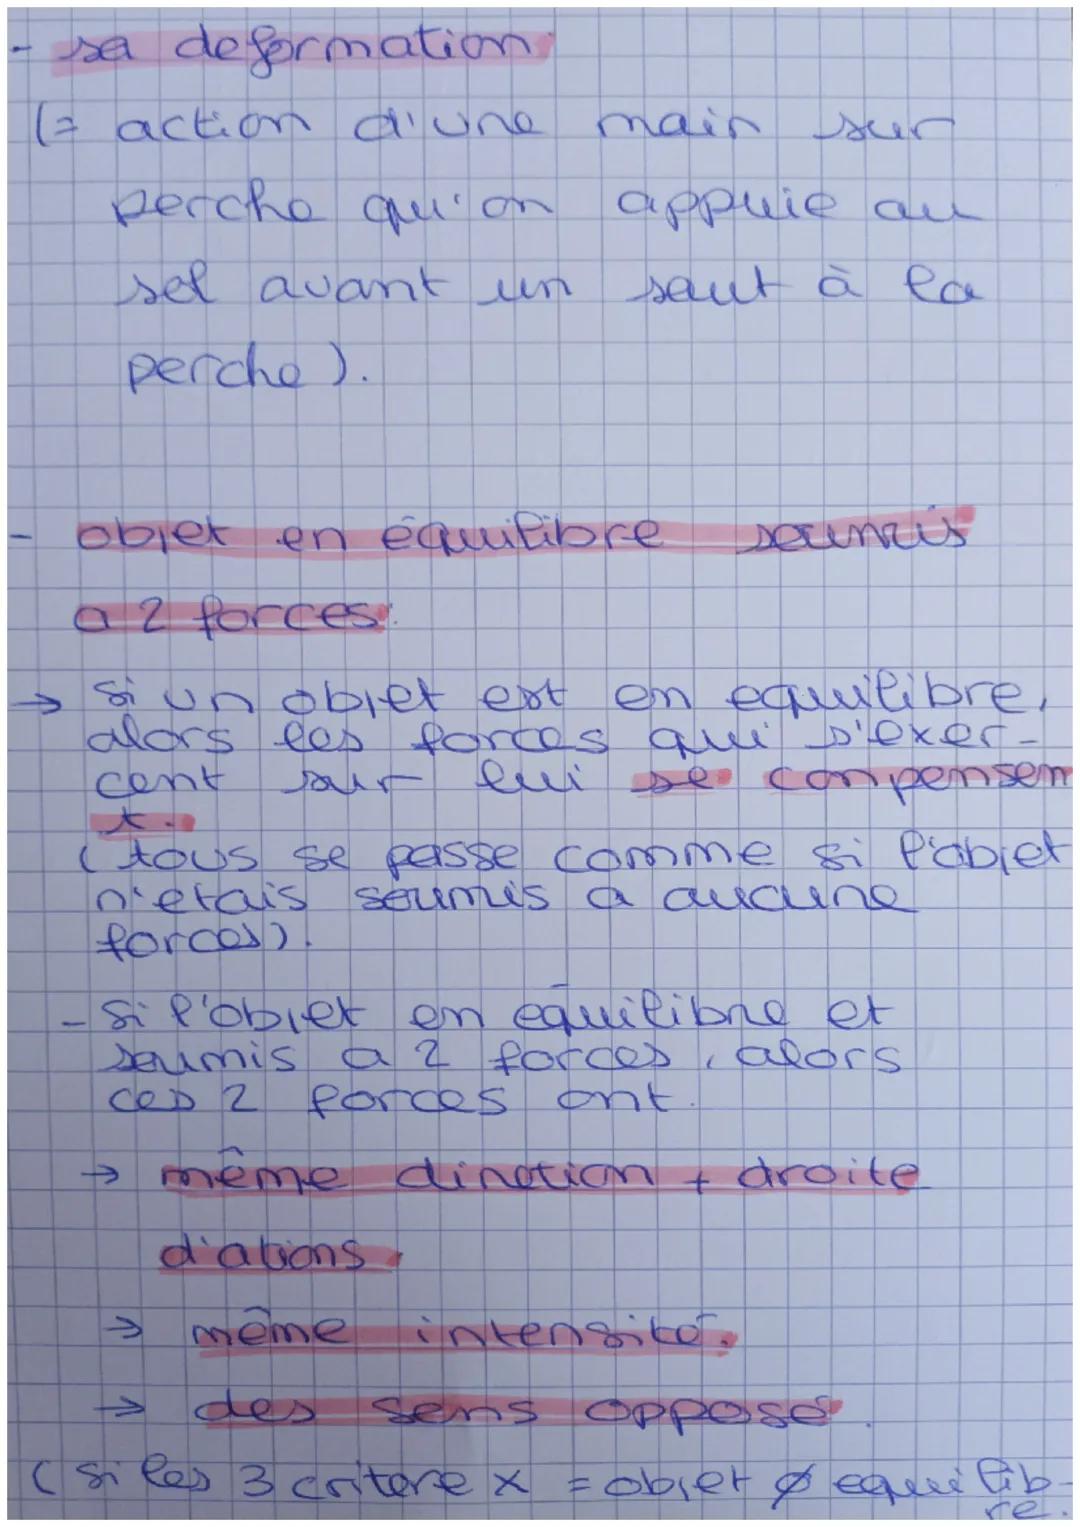 - sa deformation.
(= action d'une main sur
perche qu'on appuie au
sol avant un saut à la
perche).
- objet en équilibre soumis
a 2 forces:
→ si un objet est en equilibre,
alors les forces qui s'exer-
cent sur lui se conpensen
t.
(tous se passe comme si l'objet
n'etais soumis a aucune
forces).
- si l'objet en equilibre et
soumis a 2 forces, alors
ces 2 forces ont.
→ même dirction + droite
d'ations.
→ même intensité.
→ des sens opposé.
(si les 3 critere x = objet ∅ equilib-
re.